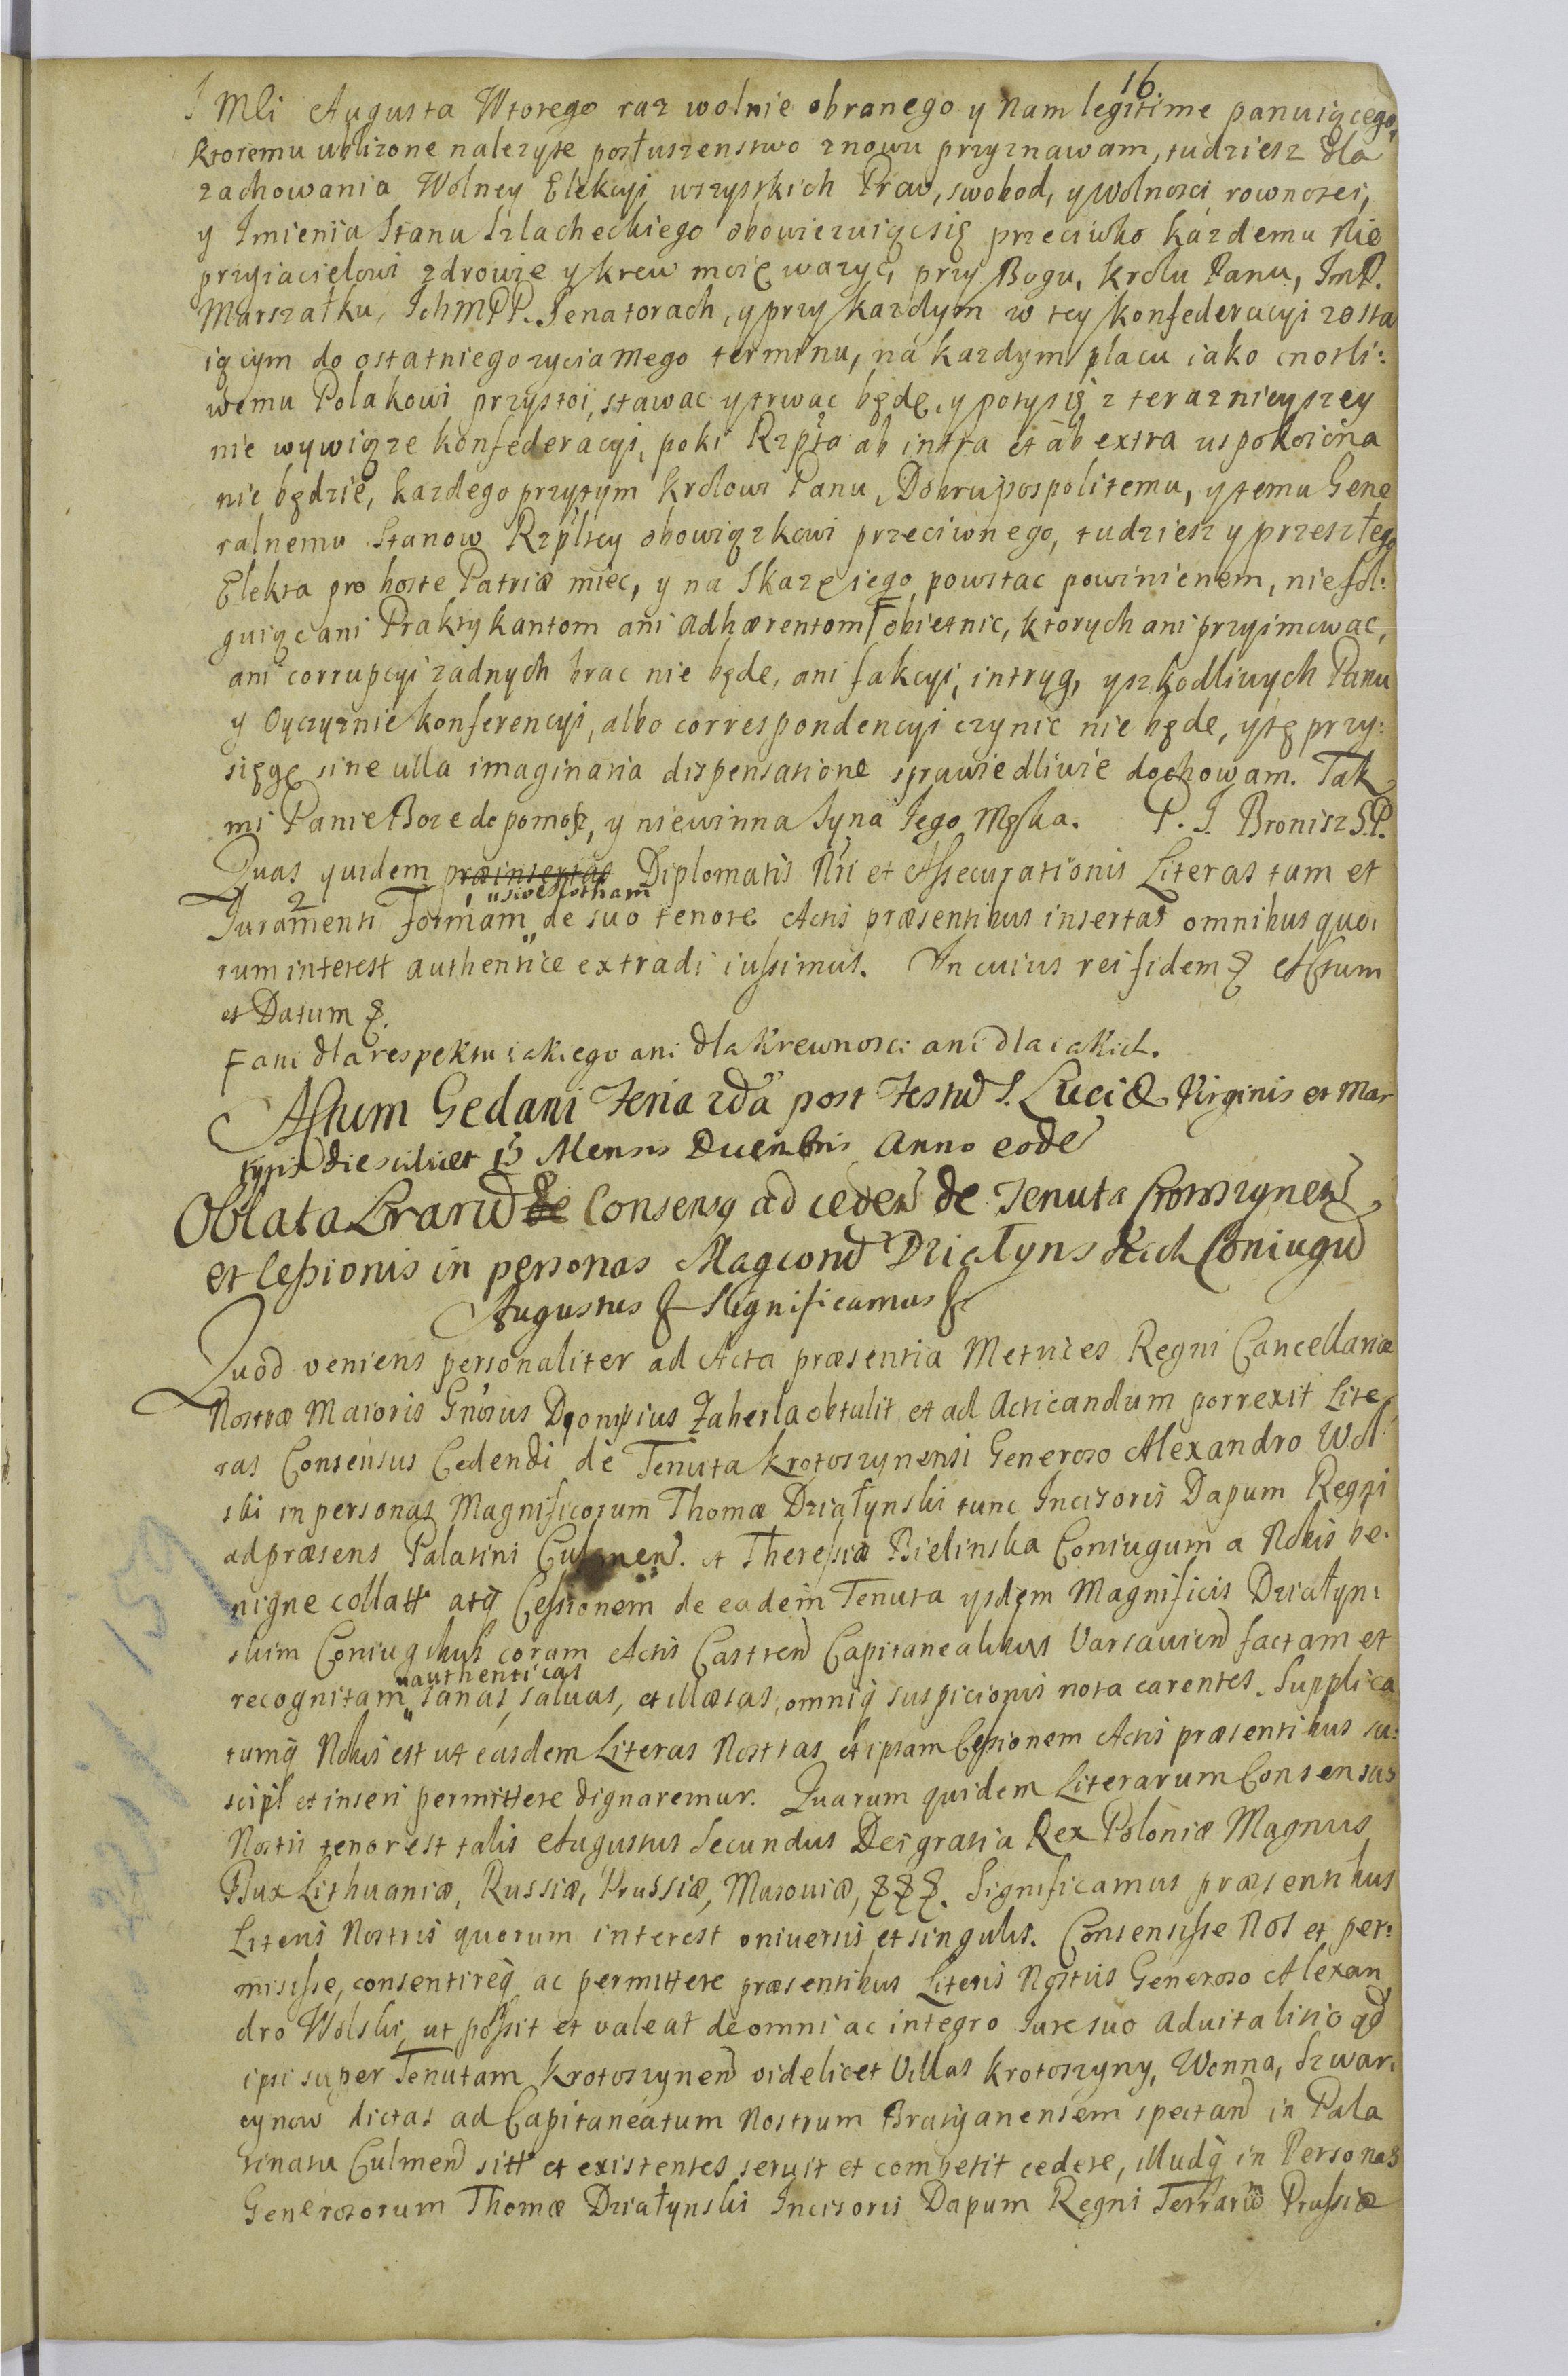 16.
J Mli Augusta Wtorego raz wolnie obranego y Nam legitime panuiącego,
ktoremu ubliżone nalezyte posłuszenstwo znowu przyznawam, tudziesz dla
zachowania Wolney Elekcyi wszystkich Praw, swobod, y Wolnosci, rownosci,
y Imienia Stanu Szlacheckiego obowiezuiąc się przeciwko kazdemu Nie
przyiacielowi zdrowie y krew moię wazyc, przy Bogu, krolu Panu, JmP.
Marszałku, JchMPP. Senatorach, y przy kazdym w tey konfederacyi zosta
iącym do ostatniego zycia mego terminu, na kazdym placu iako cnotli:
wemu Polakowi przystoi, stawac y trwac będę, y poty się z teraznieyszey
nie wywiąze konfederacyi, poki Rzpta ab intra et ab extra uspokoiona
nie będzie, kazdego przytym krolowi Panu, Dobru pospolitemu, y temu Gene
ralnemu Stanow Rzpltey obowiązkowi przeciwnego, tudziesz y przeszłego
Elekta pro hoste Patriæ miec, y na Skazę iego powstac powinienem, nie fol:
guiąc ani Praktykantom ani Adhærentom F obietnic, ktorych ani przyimowac,
ani corrupcyi zadnych brac nie będę, ani fakcyi, intryg, y szkodliwych Panu
y Oyczyznie konferencyi, albo correspondencyi czynic nie będę, y tę przy:
sięgę sine ulla imaginaria dispensatione sprawiedliwie dochowam. Tak
mi Panie Boze dopomosz, y niewinna Syna Jego Męka. P. J. Bronisz S.P.
Quas quidem præinsertas Diplomatis Nri et Assecurationis Literas tum et
" sive Rotham
Juramenti Formam " de suo tenore Actis præsentibus insertas omnibus quo:
rum interest authentice extradi iussimus. In cuius rei fidem & Actum
et Datum &.
F ani dla respektu iakiego ani dla krewnosci ani dla iakich.
Actum Gedani Feria 2da post Festum S. Luciæ Virginis et Mar
tyris die scilicet 15 Mensis Decembris Anno eodem
Oblata Lrarum de Consensus ad ceden de Tenuta Crotoszynen
et Cessionis in personas Magcorum Działynskich Coniugum
Augustus & Significamus &
Quod veniens personaliter ad Acta præsentia Metrices Regni Cancellariæ
Nostræ Maioris Gnosus Dyonisius Zaherla obtulit et ad Acticandum porrexit Lite
ras Consensus Cedendi de Tenuta Krotoszynensi Generoso Alexandro Wol
ski in personas Magnificorum Thomæ Działynski tunc Incisoris Dapum Regni
ad præsens Palatini Culmen. et Theresiæ Bielinska Coniugum a Nobis be:
nigne collatt atq Cessionem de eadem Tenuta ysdem Magnificis Działyn:
skim Coniugibus coram Actis Castren Capitanealibus Varsavien factam et
" authenticas
recognitam " sanas, salvas, et illæsas, omniq suspicionis nota carentes. Supplica
tumq Nobis est ut easdem Literas Nostras et ipsam Cessionem Actis præsentibus su:
scipi et inseri permittere dignaremur. Quarum quidem Literarum Consensus
Nostri tenor est talis Augustus Secundus Dei gratia Rex Poloniæ Magnus
Dux Lithuaniæ, Russiæ, Prussiæ, Masoviæ, &&&. Significamus præsentibus
Literis Nostris quorum interest universis et singulis. Consensisse Nos et per:
misisse, consentireq ac permittere præsentibus Literis Nostris Generoso Alexan
dro Wolski, ut possit et valeat de omni ac integro Jure suo advitalitio qd
ipsi super Tenutam Krotoszynen videlicet Villas Krotoszyny, Wonna, Szwar:
cynow dictas ad Capitaneatum Nostrum Bratyanensem spectan in Pala
tinatu Culmen sitt et existentes servit et competit cedere, illudq in Personas
Generosorum Thomæ Działynski Incisoris Dapum Regni Terrarum Prussiæ